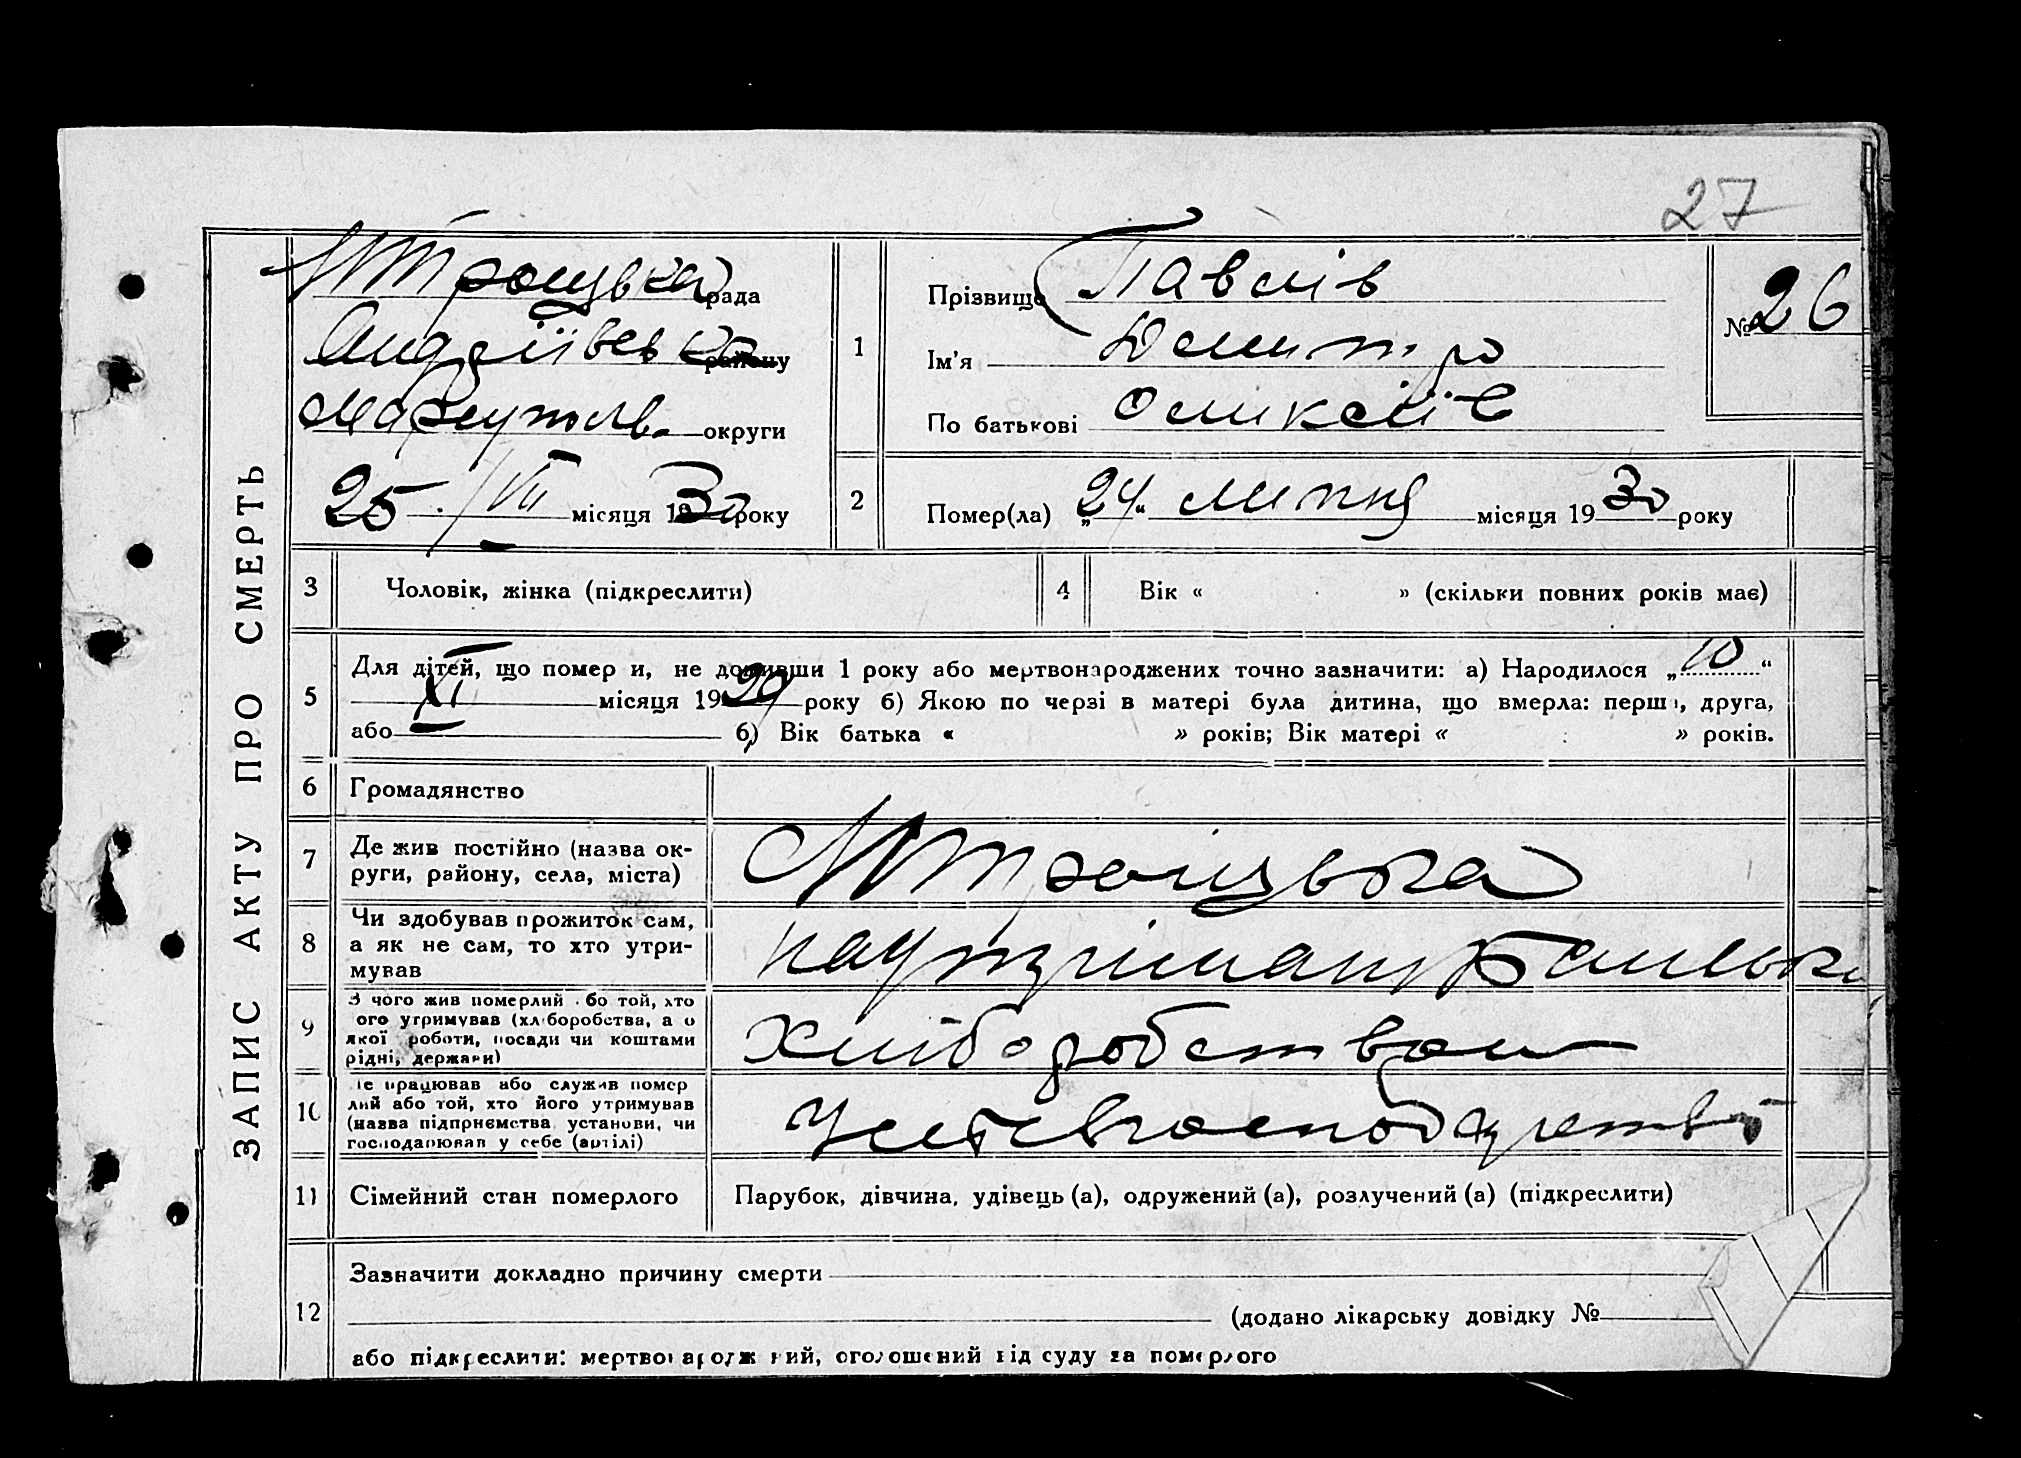 27
ЗАПИС АКТУ ПРО СМЕРТЬ
рада
району
Маріупольв. округи
25. / VII місяця 1930 року
1
Прізвище Павлів
Ім'я Дмитро
По батькові
№ 26
2
Помер(ла) „24“ липня місяця 1930 року
3
Чоловік, жінка (підкреслити)
4
Вік « » (скільки повних років має)
5
Для дітей, що помер и, не доживши 1 року або мертвонароджених точно зазначити: а) Народилося „10“
XI місяця 1929 року б) Якою по черзі в матері була дитина, що вмерла: перша, друга,
або б) Вік батька « » років; Вік матері « » років.
6
Громадянство
7
Де жив постійно (назва ок-
руги, району, села, міста)
8
Чи здобував прожиток сам,
а як не сам, то хто утри-
мував
на утриманні батька
9
З чого жив померлий або той, хто
ого утримував (хліборобства, а о
якої роботи, посади чи коштами
рідні, держави)
Хліборобством
10
е працював або служив помер
лий або той, хто його утримував
(назва підприємства установи, чи
господарював у себе (артілі)
У себе в господарстві
11
Сімейний стан померлого
Парубок, дівчина, удівець (а), одружений (а), розлучений (а) (підкреслити)
12
Зазначити докладно причину смерти
(додано лікарську довідку №
або підкреслити: мертвонароджений, оголошений від суду за померлого